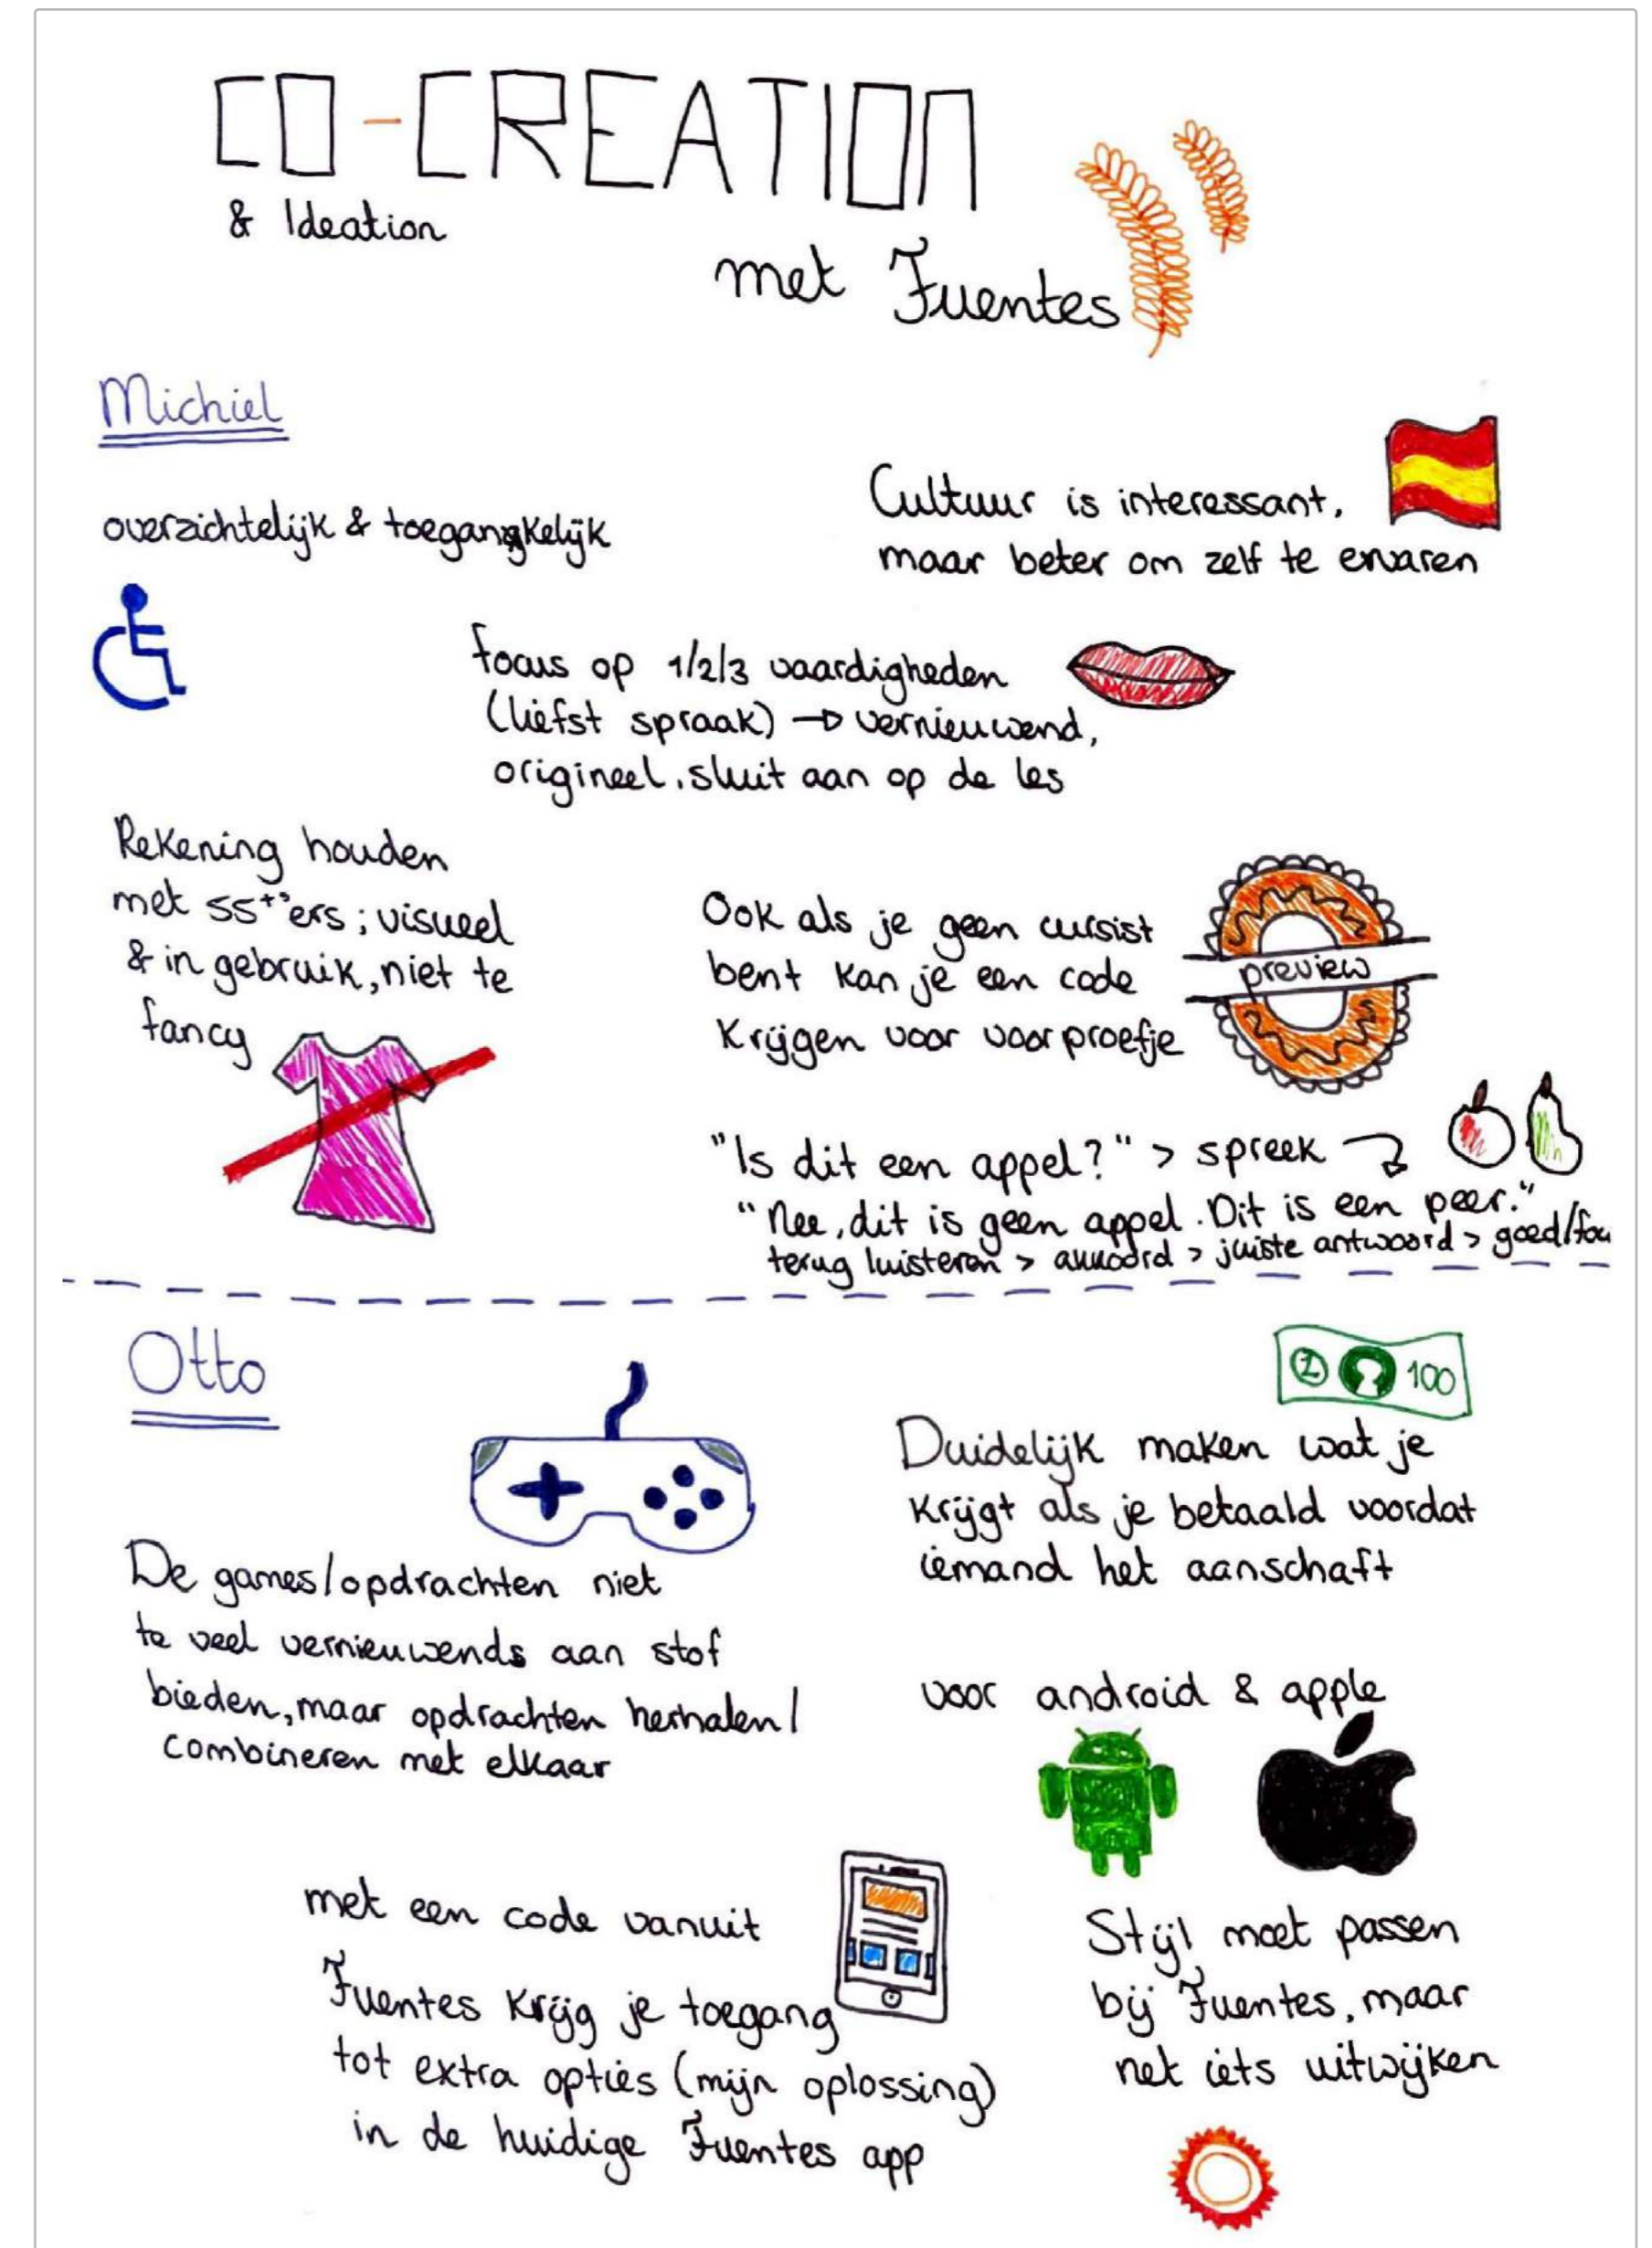 CO-CREATION
& Ideation
met Fuentes
Michiel
overzichtelijk & toegankelijk
Cultuur is interessant,
maar beter om zelf te ervaren
focus op 1/2/3 vaardigheden
(liefst spraak) → vernieuwend,
origineel, sluit aan op de les
Rekening houden
met 55+'ers; visueel
& in gebruik, niet te
fancy
Ook als je geen cursist
bent kan je een code
krijgen voor voorproefje
preview
"Is dit een appel?" > spreek
"Nee, dit is geen appel. Dit is een peer."
terug luisteren > akkoord > juiste antwoord > goed/fou
Otto
1 100
De games/opdrachten niet
te veel vernieuwends aan stof
bieden, maar opdrachten herhalen/
combineren met elkaar
Duidelijk maken wat je
krijgt als je betaald voordat
iemand het aanschaft
voor android & apple
met een code vanuit
Fuentes krijg je toegang
tot extra opties (mijn oplossing)
in de huidige Fuentes app
Stijl moet passen
bij Fuentes, maar
net iets uitwijken